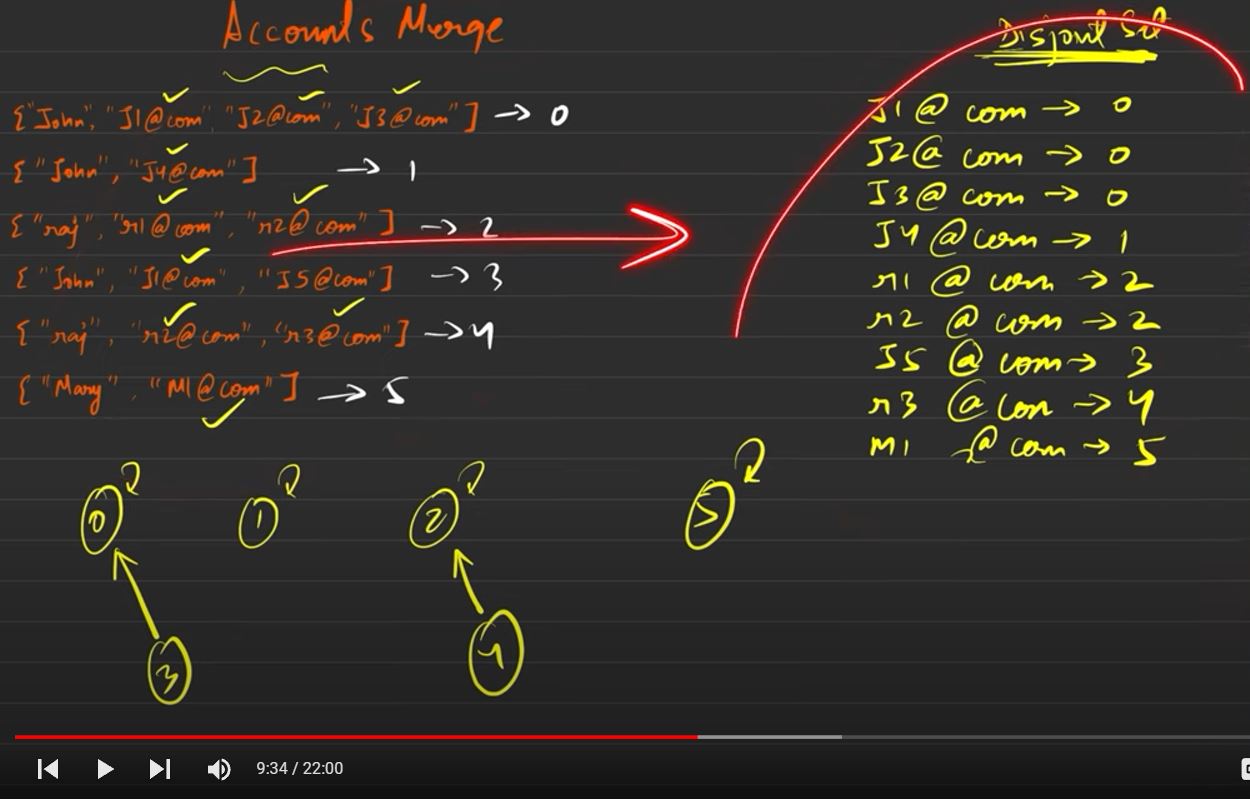 Accounts Merge
{"John", "J1@com", "J2@com", "J3@com"] → 0
{"John", "J4@com"] → 1
{"raj", "r1@com", "r2@com"] → 2
{"John", "J1@com", "J5@com"] → 3
{"raj", "r2@com", "r3@com"] → 4
{"Mary", "M1@com"] → 5
Disjoint Set
J1@com → 0
J2@com → 0
J3@com → 0
J4@com → 1
r1@com → 2
r2@com → 2
J5@com → 3
r3@com → 4
M1@com → 5
0 1 2 5
3 4
9:34 / 22:00